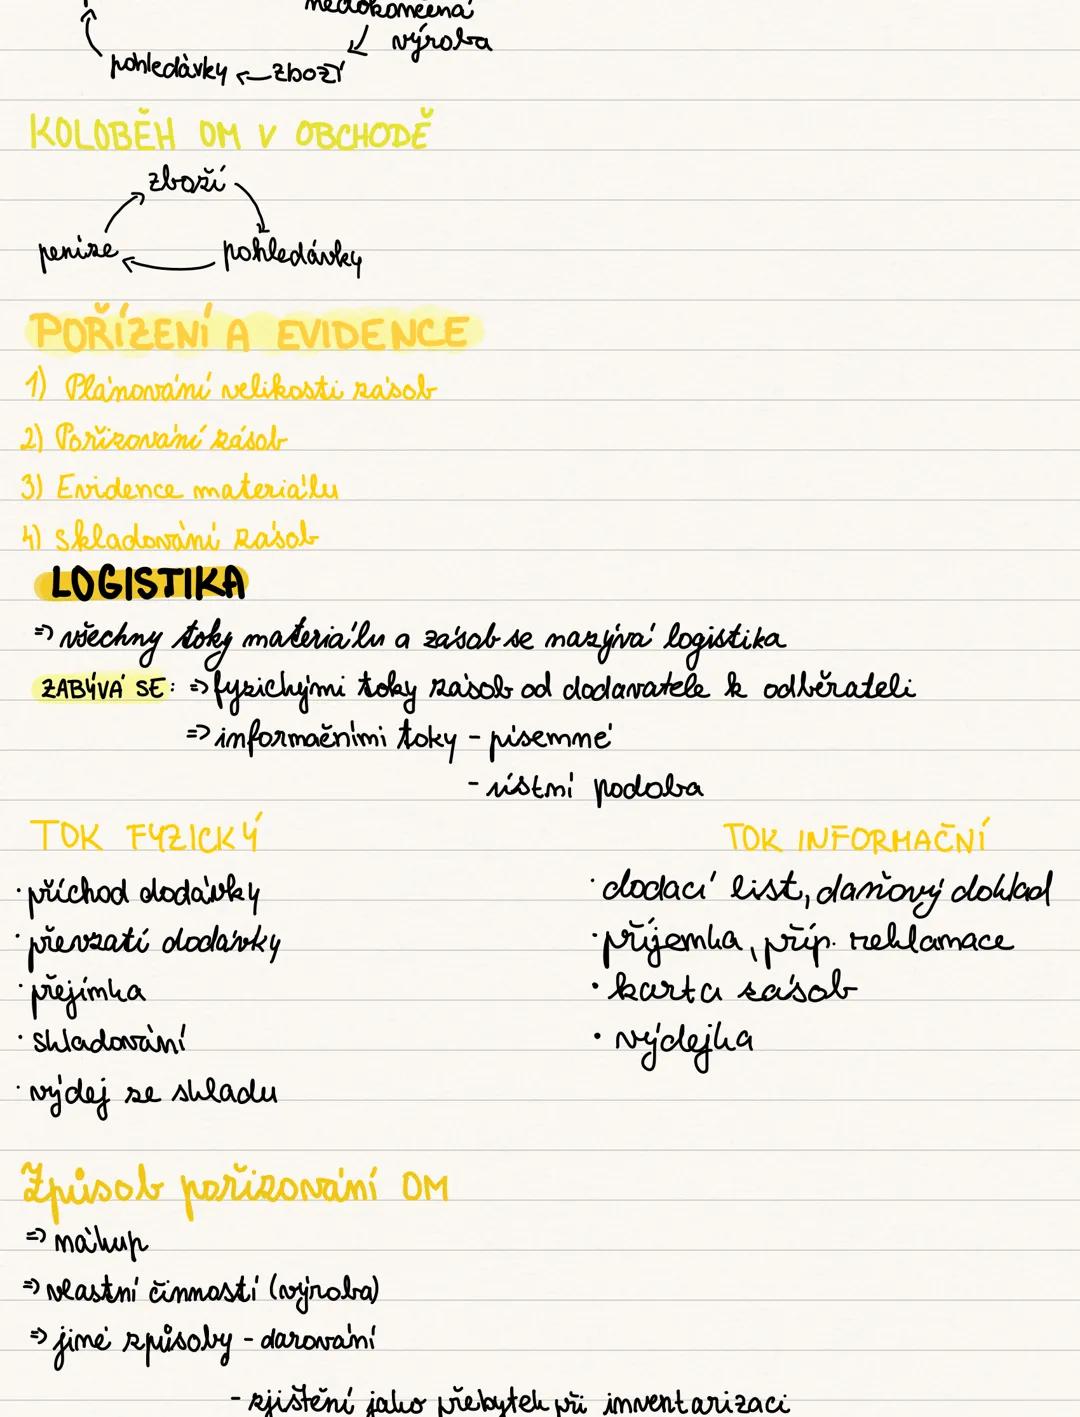 nedokončená
výroba
pohledávky ← zboží
KOLOBĚH OM V OBCHODĚ
zboží
peníze
pohledávky
POŘÍZENÍ A EVIDENCE
1) Plánování velikosti zásob
2) Pořizování zásob
3) Evidence materiálu
4) Skladování zásob
LOGISTIKA
=> všechny toky materiálu a zásob se nazývá logistika
ZABÝVÁ SE: => fyzickými toky zásob od dodavatele k odběrateli
=> informačními toky - písemné
- ústní podoba
TOK FYZICKÝ
· příchod dodávky
· převzatí dodávky
· přejímka
· skladování
· výdej ze skladu
TOK INFORMAČNÍ
· dodací list, daňový doklad
· příjemka, příp. reklamace
· karta zásob
· výdejka
Způsob pořizování OM
=> nákup
=> vlastní činností (výroba)
=> jiné způsoby - darování
- zjištění jako přebytek při inventarizaci